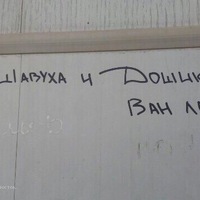 ШАВУХА И ДОШИК
ВАН